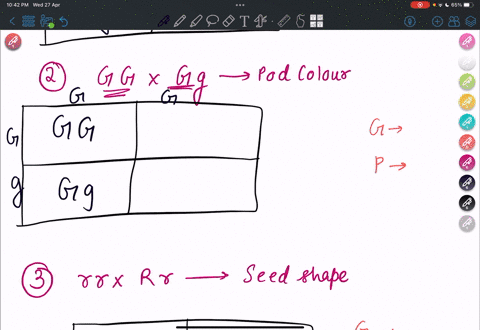 10:42 PM Wed 27 Apr
65%
② GG x Gg → Pod Colour
G G
G GG
g Gg
G →
P →
③ rr x Rr → Seed shape
G